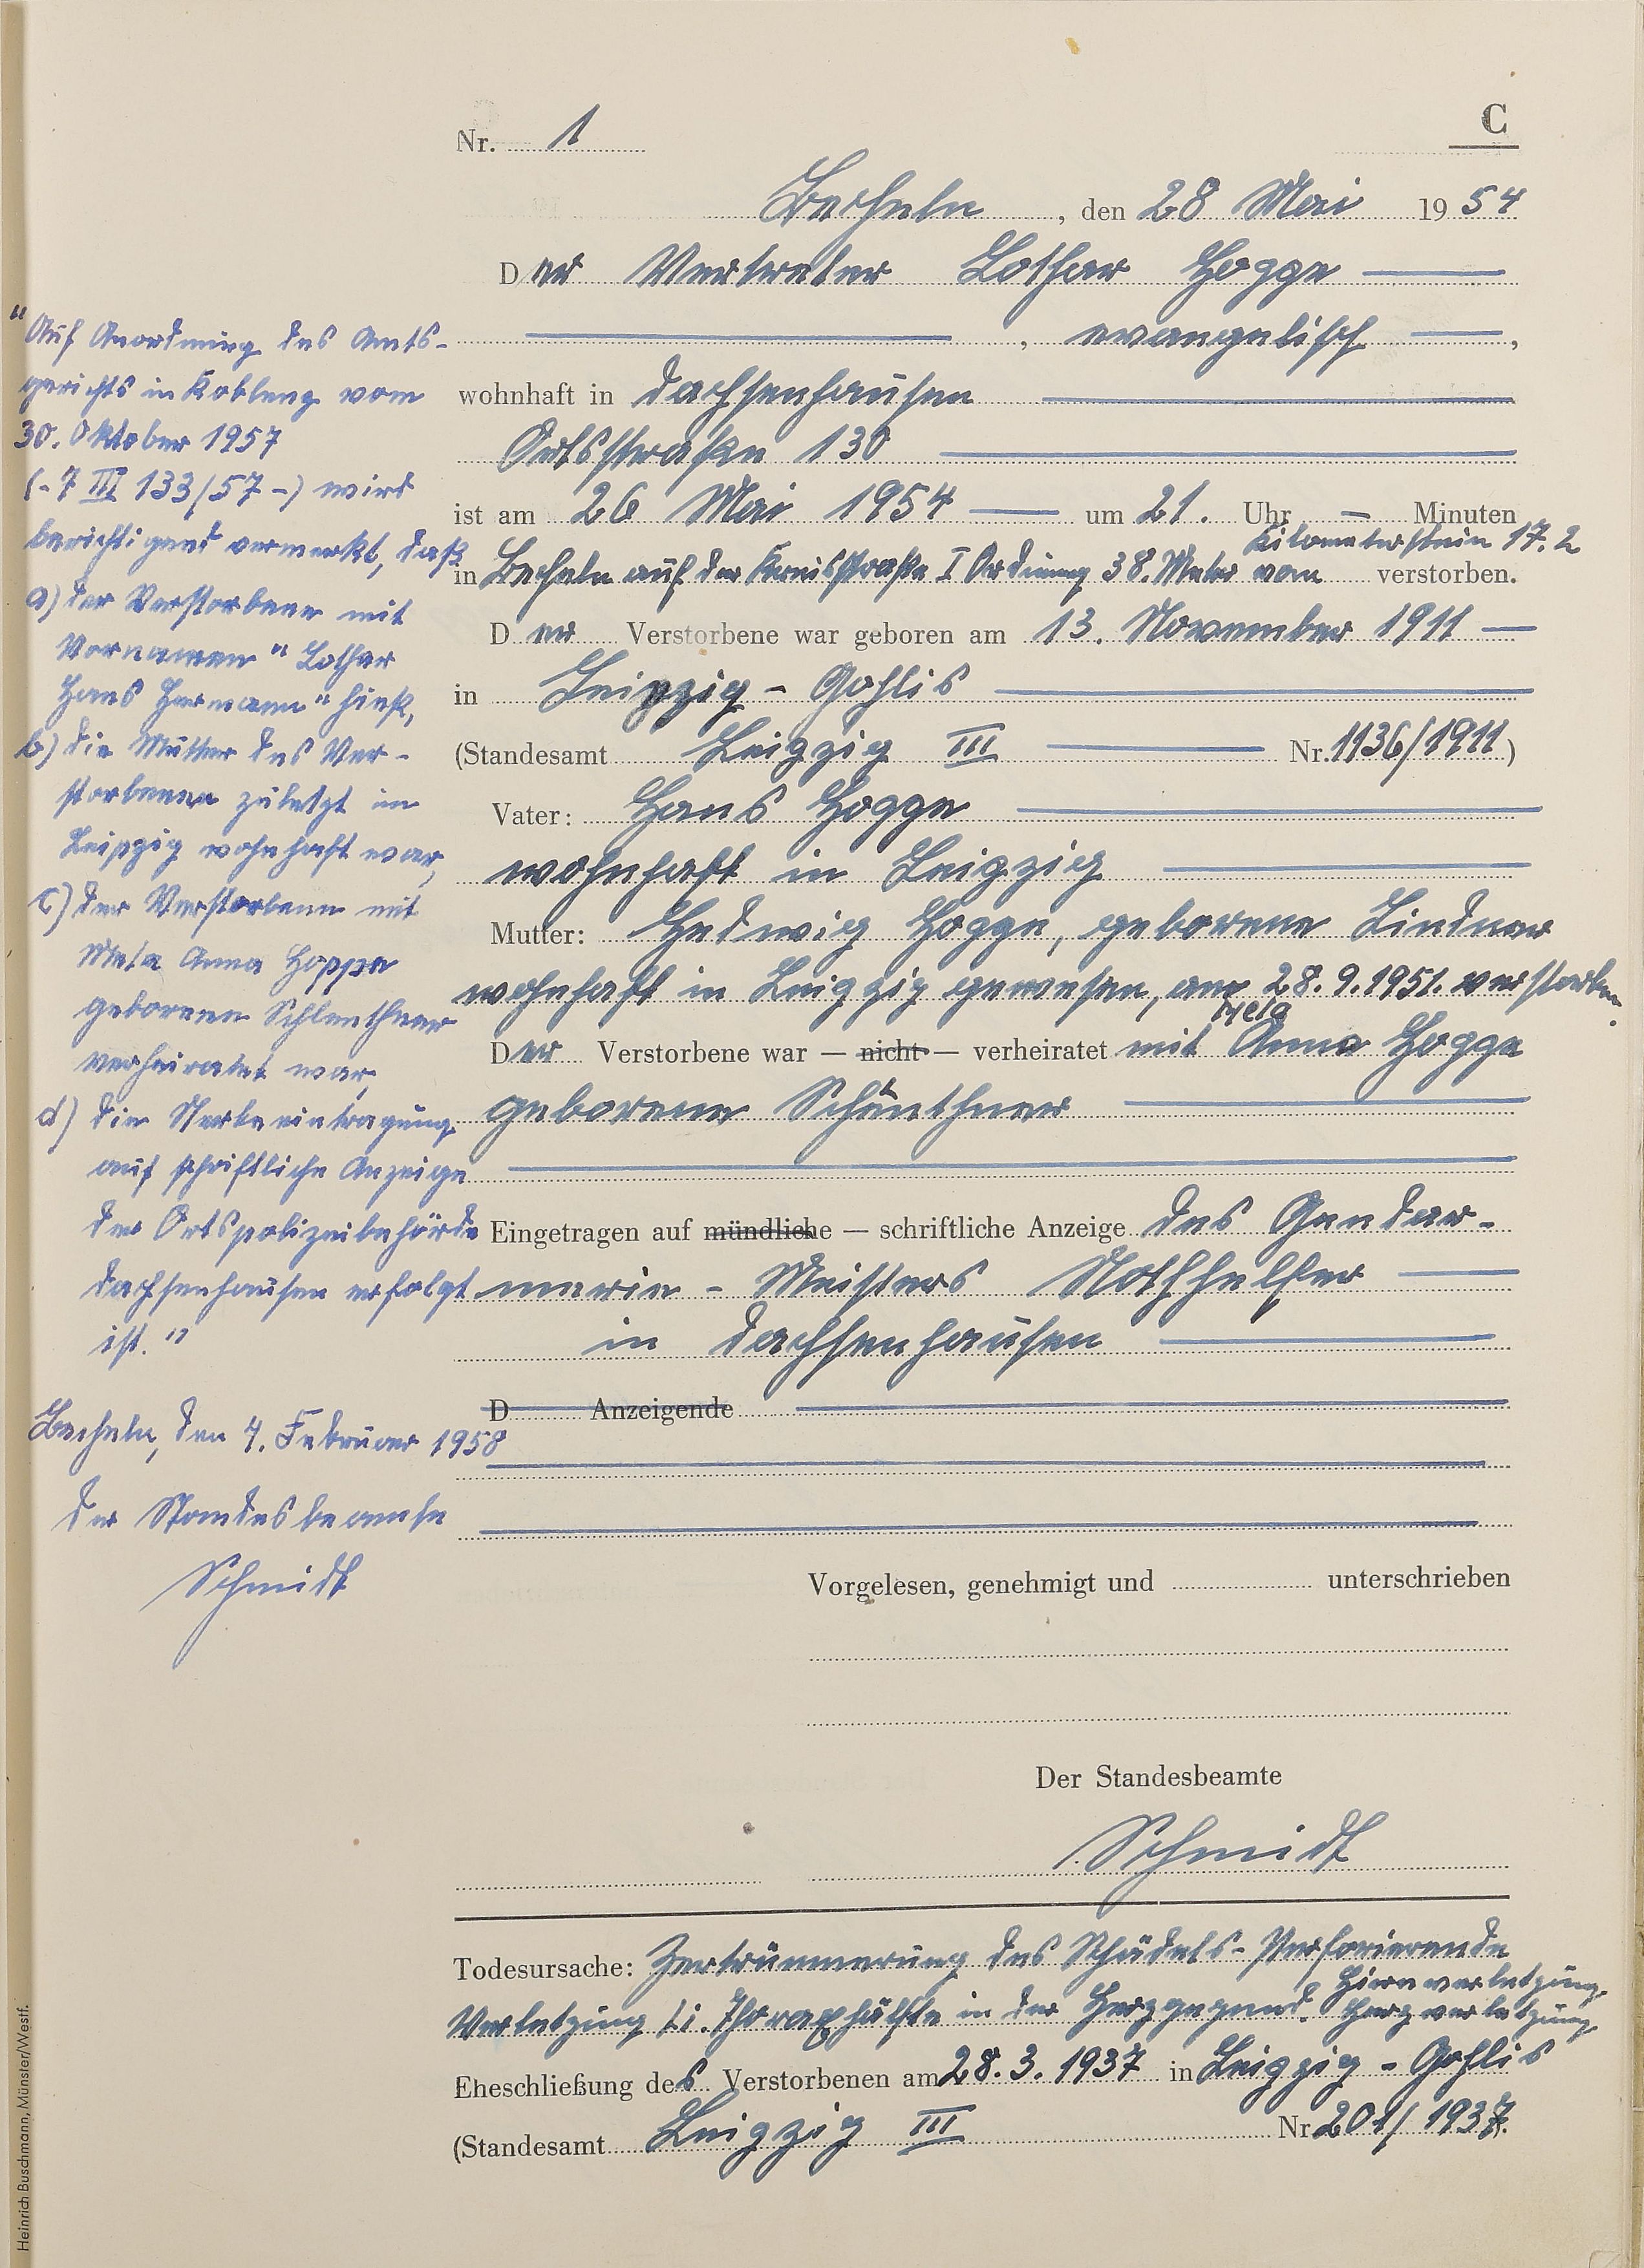 Nr. 1
C
Becheln, den 28 Mai 1954
Der Vertreter Lothar Hoppe
, evangelisch ,
wohnhaft in Dachsenhausen
Ortsstraße 130
ist am 26 Mai 1954 um 21. Uhr — Minuten
Kilometerstein 17.2
in Becheln auf der Kreisstraße I Ordnung 38. Meter vom verstorben.
Der Verstorbene war geboren am 13. November 1911
in Leipzig - Gohlis
(Standesamt Leipzig III Nr. 1136/1911)
Vater: Hans Hoppe
wohnhaft in Leipzig
Mutter: Hedwig Hoppe, geborene Lindner
wohnhaft in Leipzig gewesen, am 28.9.1951. verstorben.
Meta
Der Verstorbene war — nicht — verheiratet mit Anna Hoppe
geborene Schlenthner
Eingetragen auf mündliche — schriftliche Anzeige des Gendar-
merie - Meisters Nothhelfer
in Dachsenhausen
D Anzeigende
Vorgelesen, genehmigt und unterschrieben
Der Standesbeamte
Schmidt
Todesursache: Zertrümmerung des Schädels - Perforierende
Hirnverletzung,
Verletzung li. Thoraxhälfte in der Herzgegend. Herzverletzung
Eheschließung des Verstorbenen am 28.3.1937 in Leipzig - Gohlis
(Standesamt Leipzig III Nr. 201/1937).
"Auf Anordnung des Amts-
gerichts in Koblenz vom
30. Oktober 1957
(- 7 III 133/57 -) wird
berichtigend vermerkt, daß
a) der Verstorbene mit
Vornamen "Lothar
Hans Hermann" hieß,
b) die Mutter des Ver-
storbenen zuletzt in
Leipzig wohnhaft war,
c) der Verstorbene mit
Meta Anna Hoppe
geborene Schlenthner
verheiratet war,
d) die Sterbeeintragung
auf schriftliche Anzeige
der Ortspolizeibehörde
Dachsenhausen erfolgt
ist."
Becheln, den 4. Februar 1958
Der Standesbeamte
Schmidt
Heinrich Buschmann, Münster/Westf.